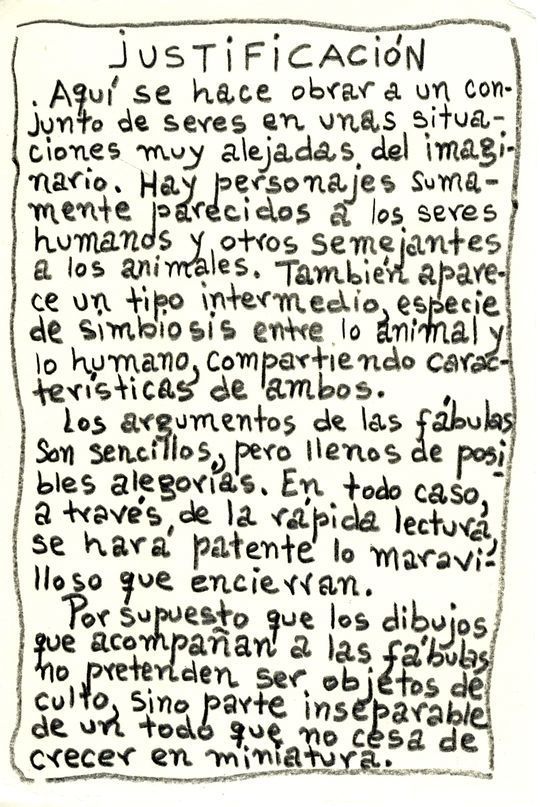 JUSTIFICACIÓN
. Aquí se hace obrar a un con-
junto de seres en unas situa-
ciones muy alejadas del imagi-
nario. Hay personajes suma-
mente parecidos a los seres
humanos y otros semejantes
a los animales. También apare-
ce un tipo intermedio, especie
de simbiosis entre lo animal y
lo humano, compartiendo carac-
terísticas de ambos.
Los argumentos de las fábulas
son sencillos, pero llenos de posi
bles alegorías. En todo caso,
a través de la rápida lectura,
se hará patente lo maravi-
lloso que encierran.
Por supuesto que los dibujos
que acompañan a las fábulas
no pretenden ser objetos de
culto, sino parte inseparable
de un todo que no cesa de
crecer en miniatura.